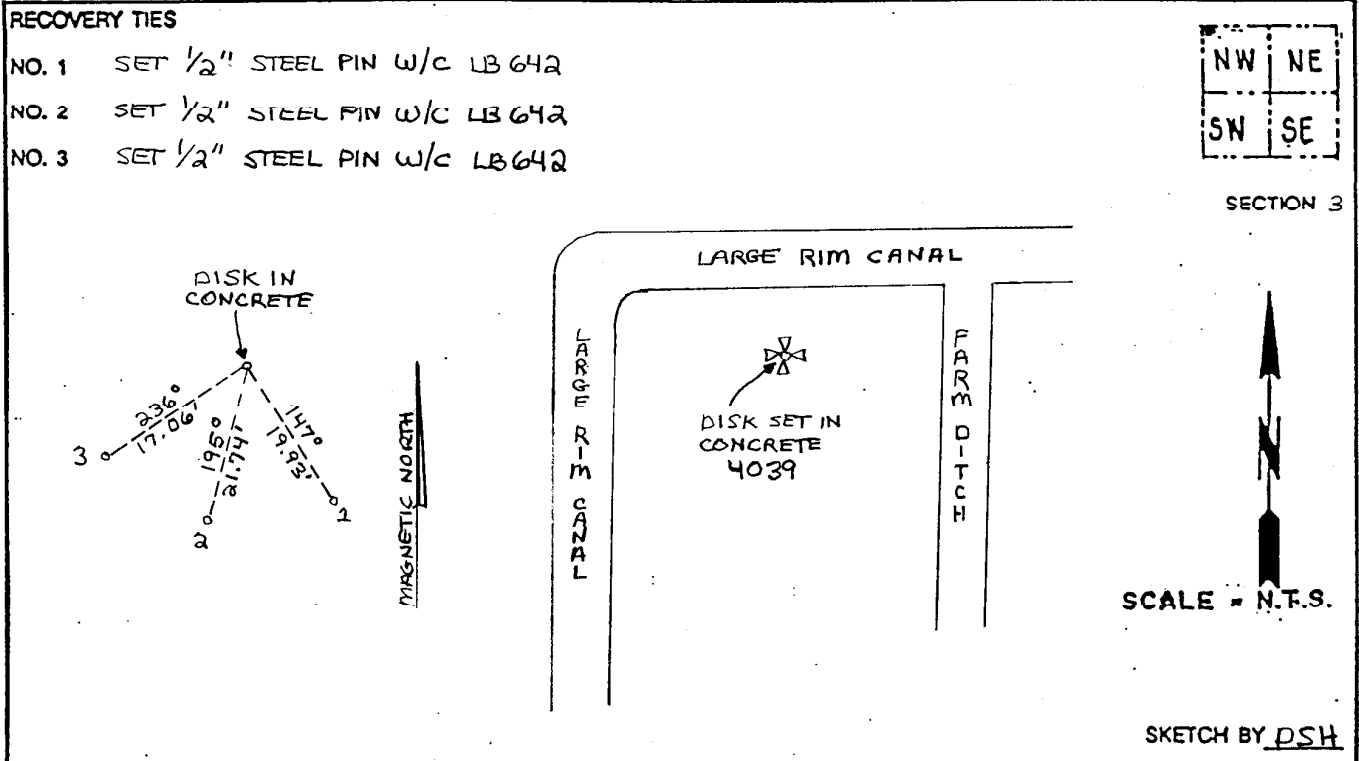 RECOVERY TIES
NO. 1 SET 1/2" STEEL PIN W/C LB 642
NO. 2 SET 1/2" STEEL PIN W/C LB 642
NO. 3 SET 1/2" STEEL PIN W/C LB 642
NW NE
SW SE
SECTION 3
DISK IN
CONCRETE
236°
17.06'
195°
21.74'
147°
19.93'
3
2
1
MAGNETIC NORTH
LARGE RIM CANAL
LARGE RIM CANAL
DISK SET IN
CONCRETE
4039
FARM DITCH
N
SCALE = N.T.S.
SKETCH BY DSH